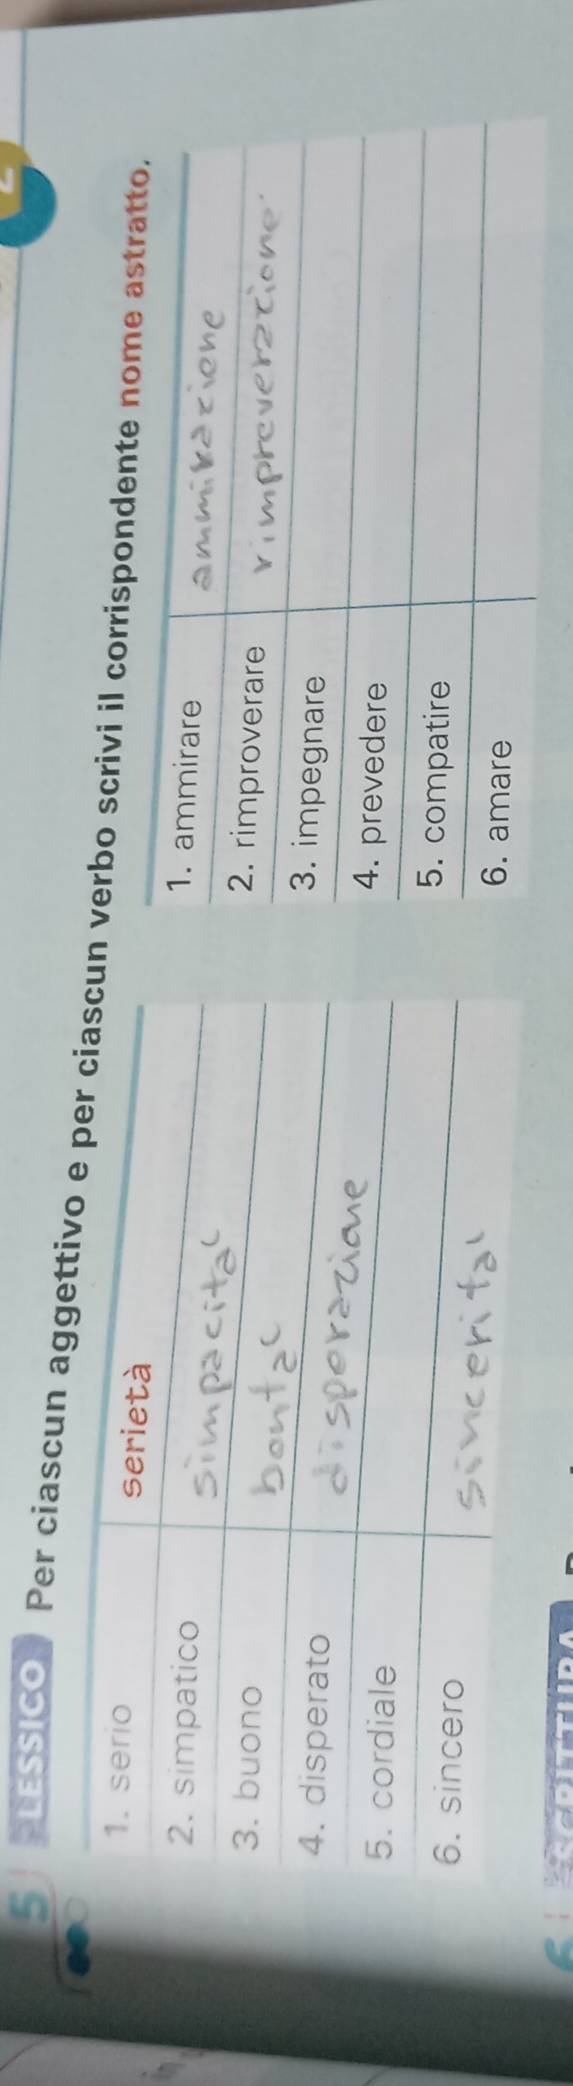 5 LESSICO Per ciascun aggettivo e per ciascun verbo scrivi il corrispondente nome astratto.
1. serio serietà
2. simpatico simpacità
3. buono bontà
4. disperato disporazione
5. cordiale
6. sincero sincerità
1. ammirare ammirazione
2. rimproverare rimproverazione
3. impegnare
4. prevedere
5. compatire
6. amare
6 SCRITTURA